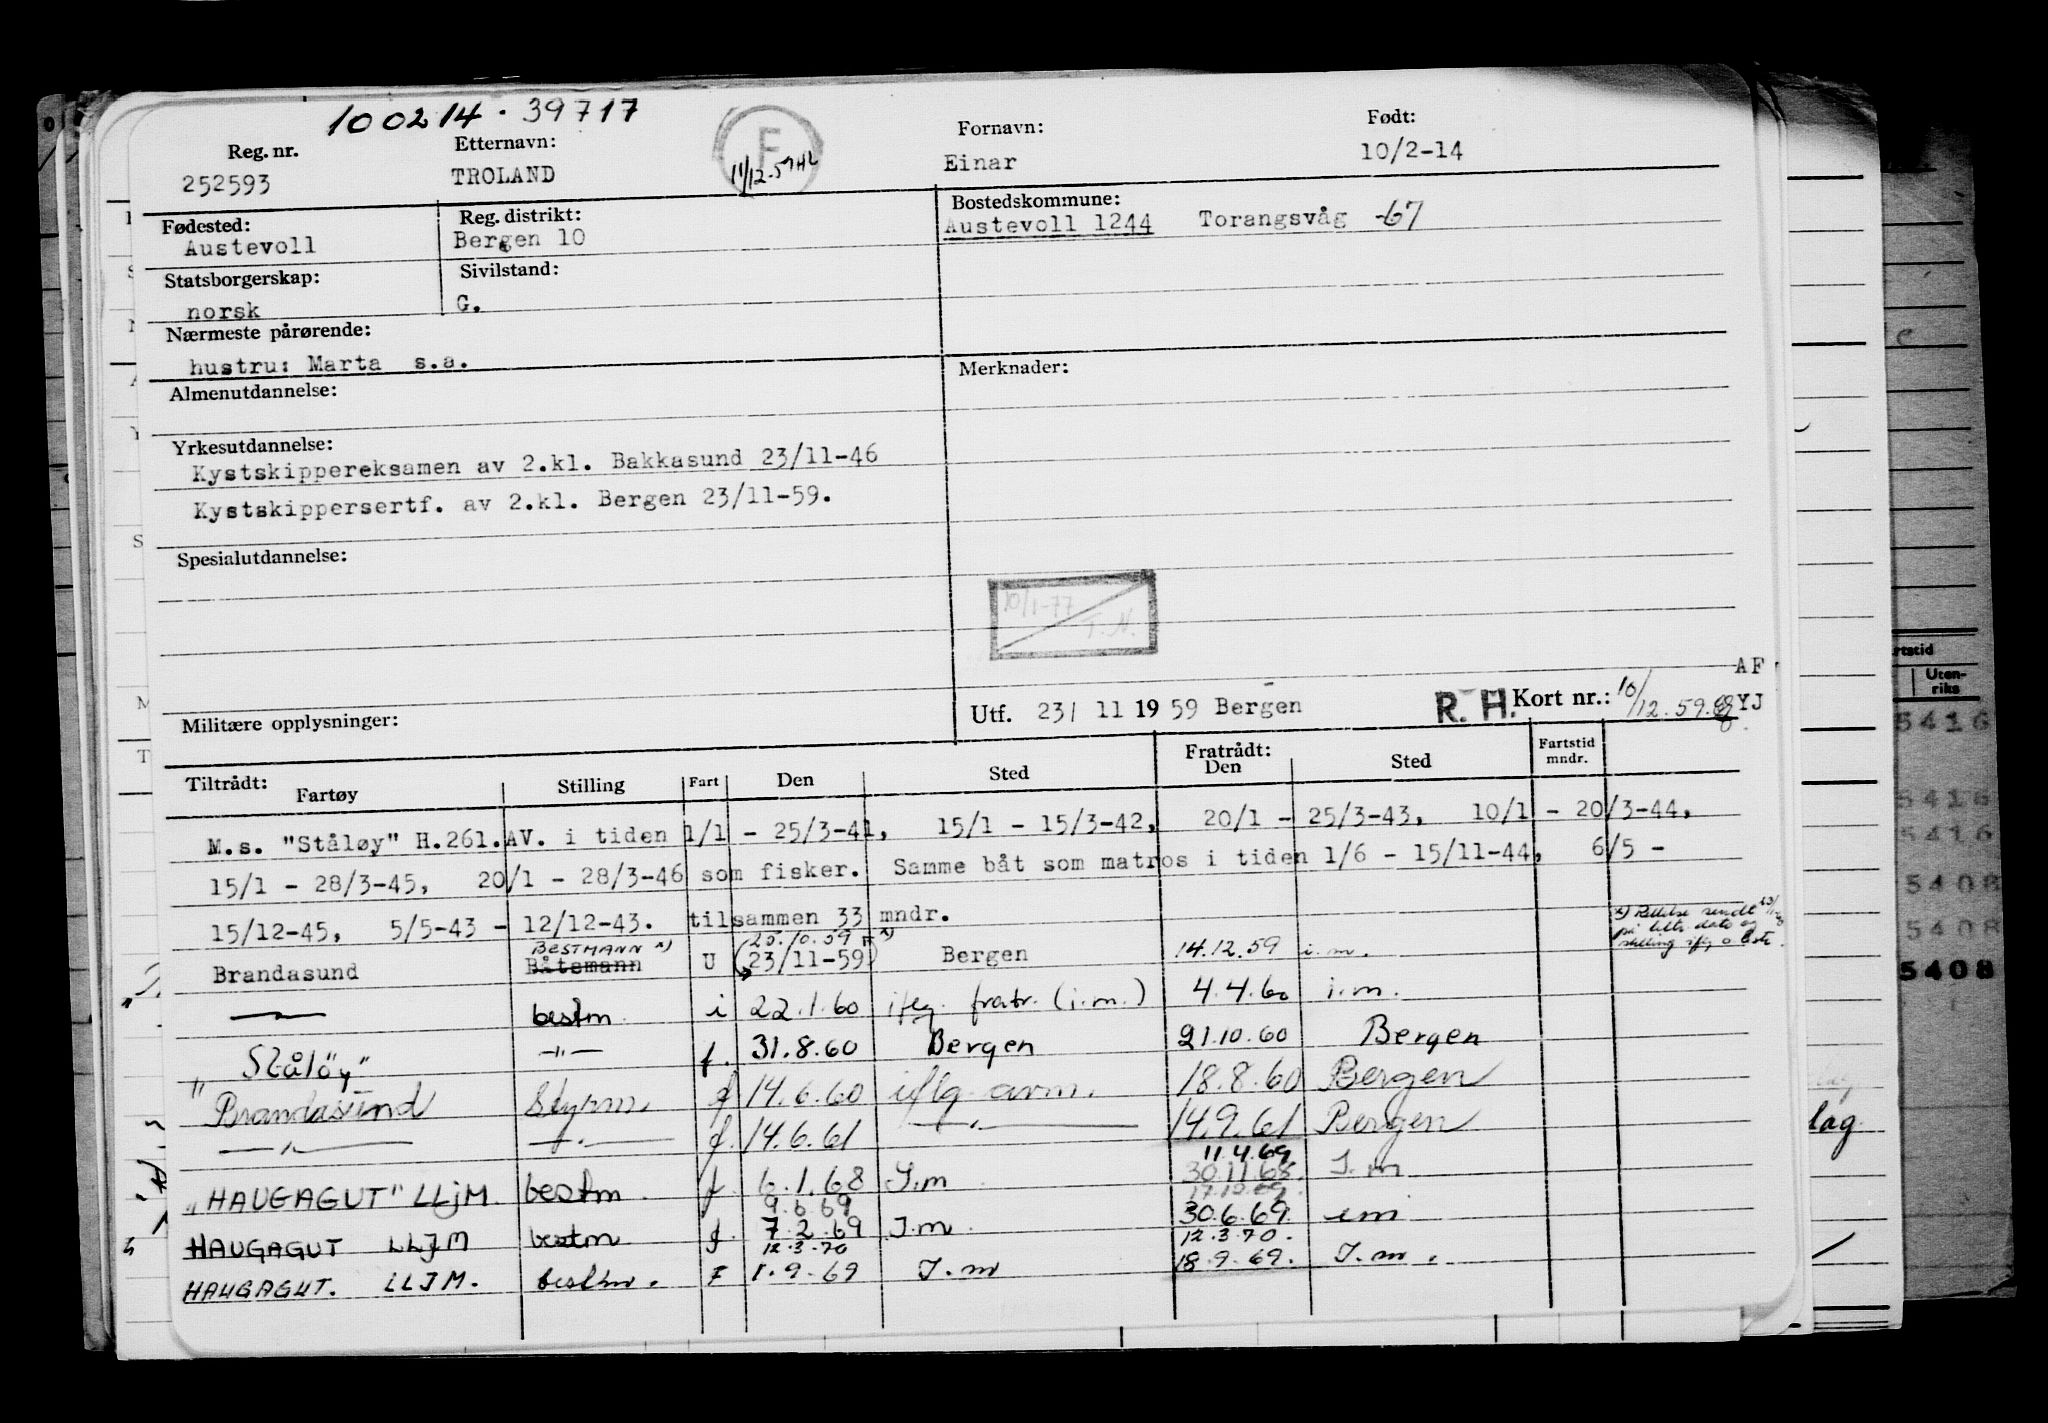 100214 · 39717
Reg. nr. Etternavn: Fornavn: Født:
252593 TROLAND Einar 10/2-14
F
11/12.59 HL
Fødested: Reg. distrikt: Bostedskommune:
Austevoll Bergen 10 Austevoll 1244 Torangsvåg -67
Statsborgerskap: Sivilstand:
norsk G.
Nærmeste pårørende:
hustru: Marta s.a.
Almenutdannelse: Merknader:
Yrkesutdannelse:
Kystskippereksamen av 2.kl. Bakkasund 23/11-46
Kystskippersertf. av 2.kl. Bergen 23/11-59.
Spesialutdannelse:
10/1-77
T.N.
AF
Militære opplysninger: Utf. 23/ 11 1959 Bergen R. H. Kort nr.: 10/12.59. YJ
Tiltrådt: Fratrådt:
Fartøy Stilling Fart Den Sted Den Sted Fartstid mndr.
M.s. "Ståløy" H.261.AV. i tiden 1/1 - 25/3-41, 15/1 - 15/3-42, 20/1 - 25/3-43, 10/1 - 20/3-44,
15/1 - 28/3-45, 20/1 - 28/3-46 som fisker. Samme båt som matros i tiden 1/6 - 15/11-44, 6/5 -
15/12-45, 5/5-43 - 12/12-43. tilsammen 33 mndr.
BESTMANN x) 25.10.59 x) x) Rettelse sendt
på tiltr. dato og
Brandasund Båtsmann U (23/11-59) Bergen 14.12.59 i.m. stilling
—"— bestm. i 22.1.60 iflg. fratr. (i.m.) 4.4.60 i.m.
"Ståløy" —"— f. 31.8.60 Bergen 21.10.60 Bergen
Brandasund Styrm. f 14.6.60 iflg avm. 18.8.60 Bergen
—"— —"— f. 14.6.61 —"— 14.9.61 Bergen
11.4.69
"HAUGAGUT" LLJM bestm. f. 6.1.68 I.m 30.11.68. I.m
9.6.69 17.10.69.
HAUGAGUT LLJM bestm f. 7.2.69 I.m. 30.6.69. im
12.3.70 12.3.70.
HAUGAGUT. LLJM. bestm. F 1.9.69 I.m 18.9.69. I.m.
rtstid
Uten-
riks
5416
5416
5416
5408
5408
5408
lag